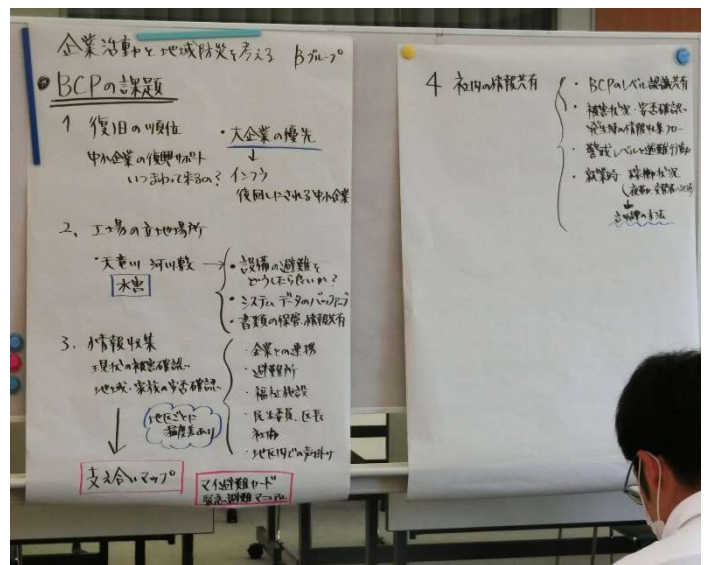 企業活動と地域防災を考える Bグループ
BCPの課題
1 復旧の順位
中小企業の復興サポート
いつまわって来るの?
・大企業の優先
↓
インフラ
後回しにされる中小企業
2、工場の立地場所
・天竜川 河川敷 →
水害
・設備の避難を
どうしたら良いか?
・システム データのバックアップ
・書類の保管、情報共有
3、情報収集
現状の被害確認
地域・家族の安否確認
地区ごとに
温度差あり
・企業との連携
・避難所
・福祉施設
・民生委員、区長
社協
・地区内での声掛け
支え合いマップ
マイ避難カード
緊急避難マニュアル
4 社内の情報共有
・BCPのレベル認識共有
・被害状況・安否確認
発生時の情報収集フロー
・警戒レベルと避難行動
・就業時 稼働状況